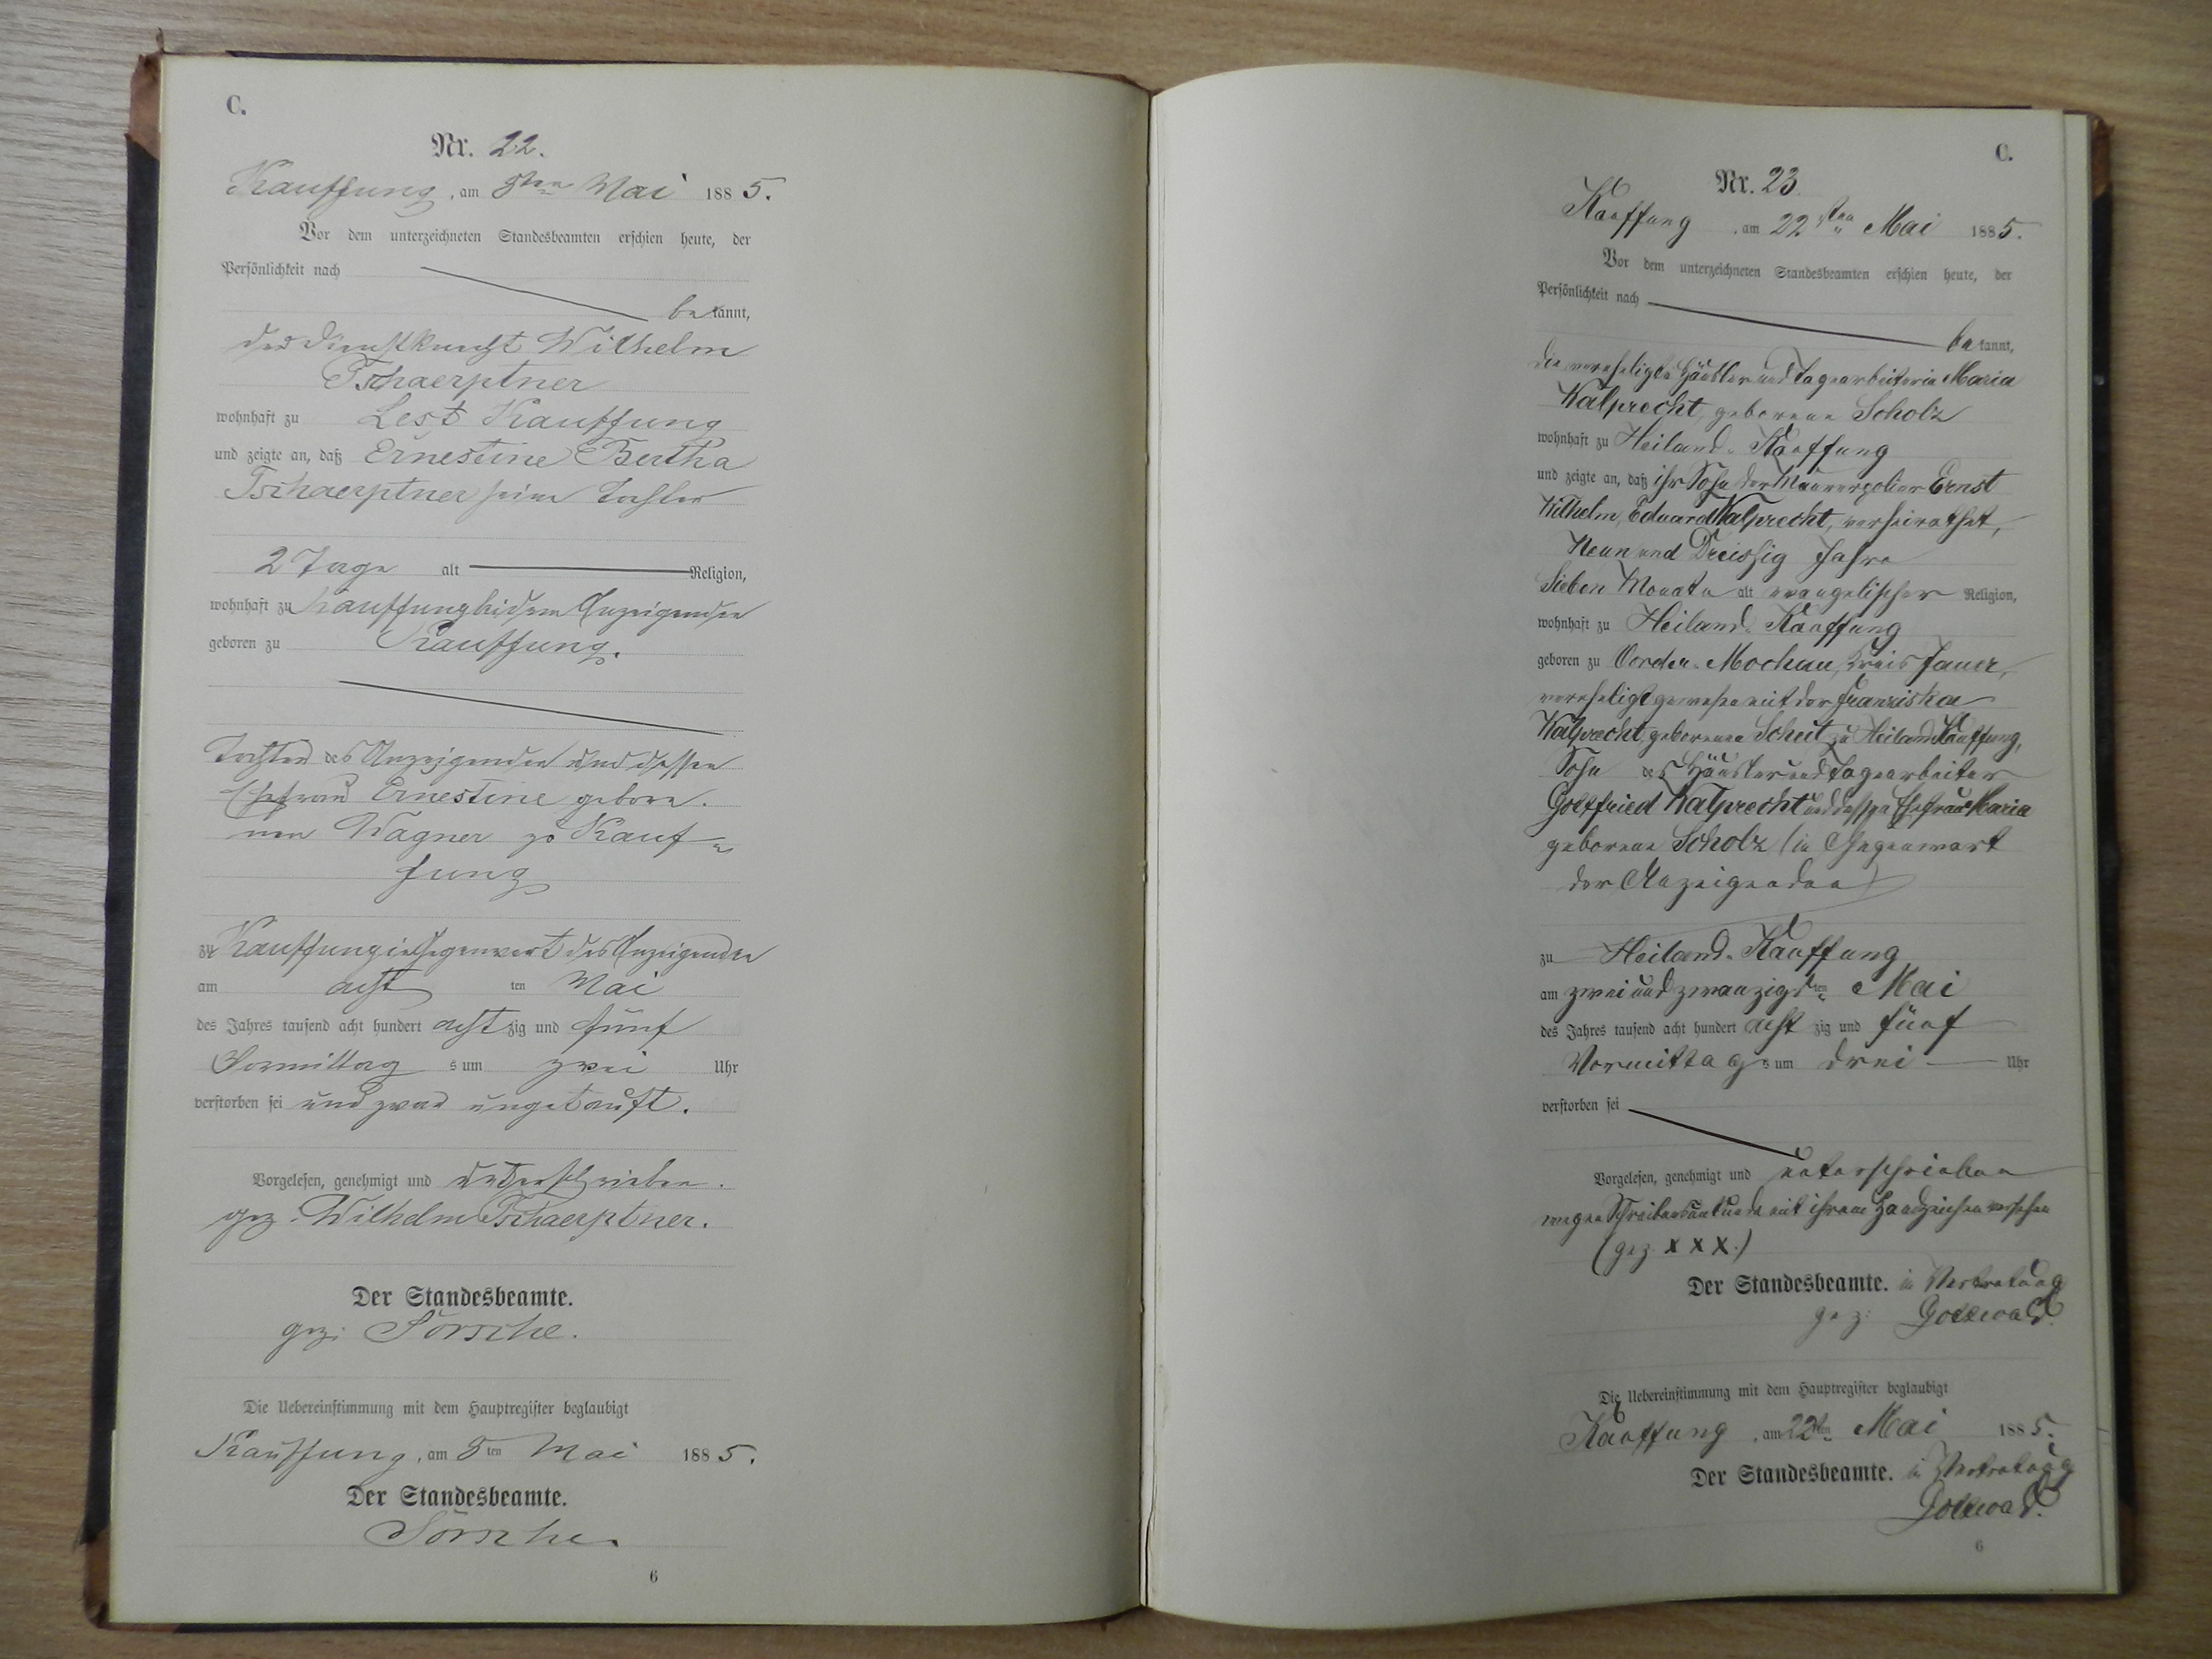 C.
Nr. 22.
Kauffung, am 8ten Mai 1885.
Vor dem unterzeichneten Standesbeamten erschien heute, der
Persönlichkeit nach
bekannt,
der Dienstknecht Wilhelm
Tschaerptner
wohnhaft zu Lest Kauffung
und zeigte an, daß Ernestine Bertha
Tschaerptner seine Tochter
2 Tage alt Religion,
wohnhaft zu Kauffung bei dem Anzeigenden
geboren zu Kauffung.
Tochter des Anzeigenden und dessen
Ehefrau Ernestine gebore-
nen Wagner zu Kauf-
fung
zu Kauffung in Gegenwart des Anzeigenden
am acht ten Mai
des Jahres tausend acht hundert achtzig und fünf
Vormittags um zwei Uhr
verstorben sei und zwar ungetauft.
Vorgelesen, genehmigt und unterschrieben.
gez. Wilhelm Tschaerptner.
Der Standesbeamte.
gez:
Die Uebereinstimmung mit dem Hauptregister beglaubigt
Kauffung, am 8ten Mai 1885.
Der Standesbeamte.
6
C.
Nr. 23
Kauffung, am 22sten Mai 1885.
Vor dem unterzeichneten Standesbeamten erschien heute, der
Persönlichkeit nach
bekannt,
die verehelichte Häusler und Tagearbeiterin Maria
Walprecht, geborene Scholz
wohnhaft zu Heiland-Kauffung
und zeigte an, daß ihr Sohn der Maurerpolier Ernst
Wilhelm Eduard Walprecht, verheirathet,
Neun und Dreissig Jahre
Sieben Monate alt evangelischer Religion,
wohnhaft zu Heiland-Kauffung
geboren zu Mochau, Kreis Jauer,
verehelicht gewesen mit der Franziska
Walprecht geborenen zu Heiland Kauffung,
Sohn des Häusler und Tagearbeiter
Gottfried Walprecht und dessen Ehefrau Maria
geborene Scholz (in Gegenwart
der Anzeigenden)
zu Heiland-Kauffung
am zwei und zwanzigsten Mai
des Jahres tausend acht hundert achtzig und fünf
Vormittags um drei Uhr
verstorben sei
Vorgelesen, genehmigt und unterschrieben
wegen Schreibensunkunde mit ihrem Handzeichen versehen
(gez. x x x.)
Der Standesbeamte. in Vertretung
gez:
Die Uebereinstimmung mit dem Hauptregister beglaubigt
Kauffung, am 22ten Mai 1885.
Der Standesbeamte. in Vertretung
6